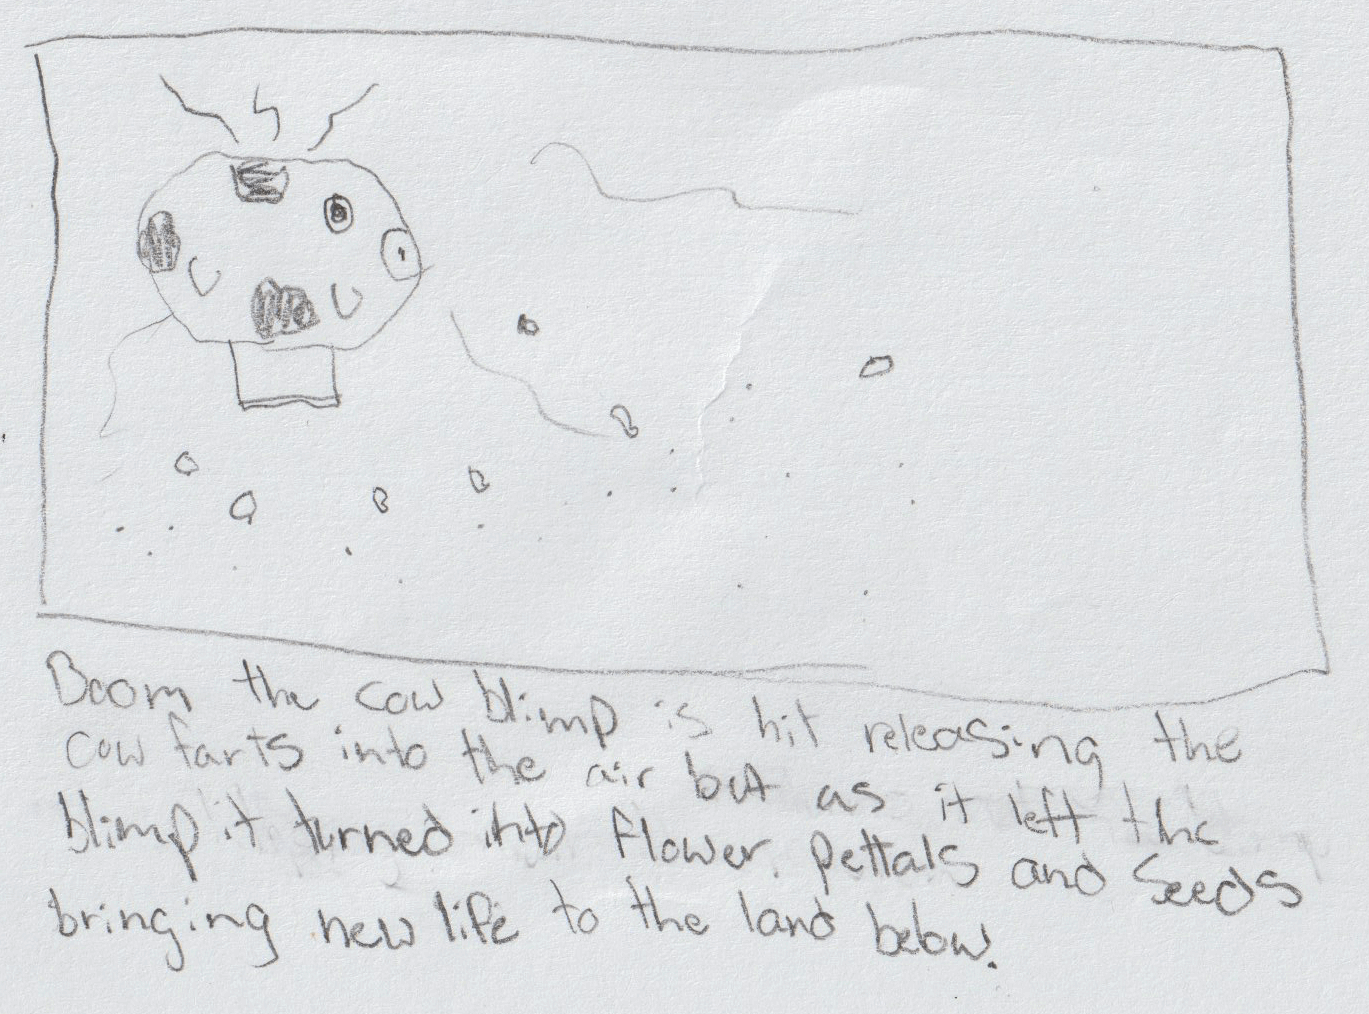 Boom the cow blimp is hit releasing the
cow farts into the air but as it left the
blimp it turned into flower pettals and seeds
bringing new life to the land below.